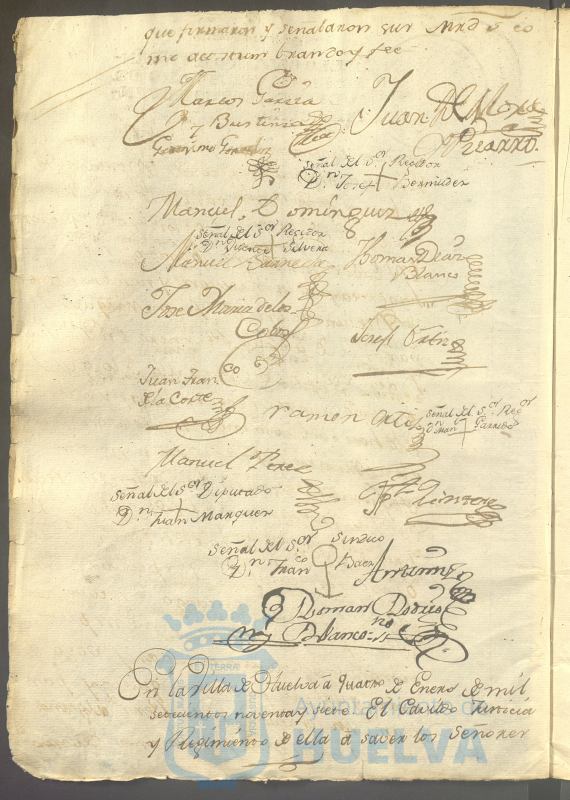 que firmaron y señalaron sus Mrds co
mo acostumbran doy fee
Marcos Garcia
y Bustinza
Juan
Pizarro
Geronimo Gonzalez
Señal del Sor. Regidor
Dn. Josef + Bermudez
Manuel Dominguez
Señal del Sor. Regidor
Dn. Vicente + Olvera
Manuel Barrera
Thomas Diaz
Blanco
Jose Maria de los
Cobos
Josef Ortiz
Juan Franco
de la Corte
ramon orta
Señal del Sor. Regor
Dn. Manl + Garrido
Manuel Perez
Señal del Sor Diputado
Dn. + Juan Marquez
Quintero
Señal del Sor. Sindico
Dn. Franco Baez
Antemi
Roman Dorico
Blanco
En la Villa de Huelva á quatro de Enero de mil
setecientos noventa y siete El Cavildo Justicia
y Regimiento de ella á saver los Señores
TERRÆ
Ayuntamiento de
HUELVA